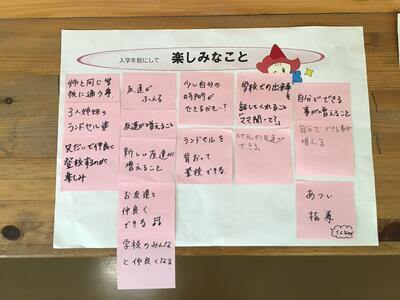 入学を前にして
楽しみなこと
姉と同じ学
校に通う事
3人姉妹の
ランドセル姿
兄だいで仲良く
登校するのが
楽しみ
友達が
ふえる
友達が増えること
新しい友達が
増えること
お友達と
仲良く
できる
学校のみんな
と仲良くなる
少し自分の
時間が
できるかも…?
ランドセルを
背おって
登校できる
学校での出来事を
話してくれること
「ママ聞いて?」
地元の友達が
できる。
自分でできる
事が増えること
自分でできる事が
増える
あつい
指導